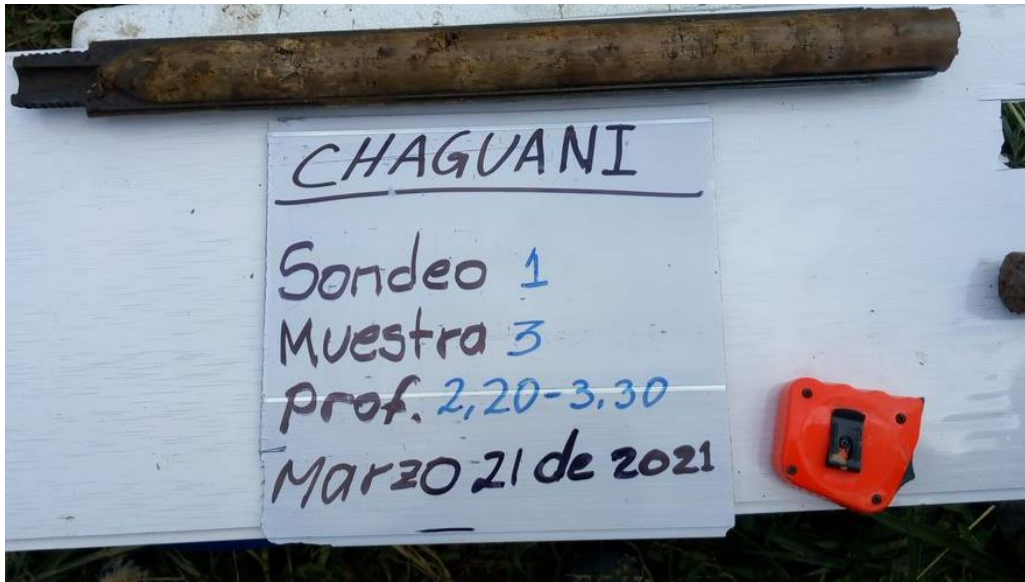 CHAGUANI
Sondeo 1
Muestra 3
Prof. 2,20-3.30
Marzo 21 de 2021